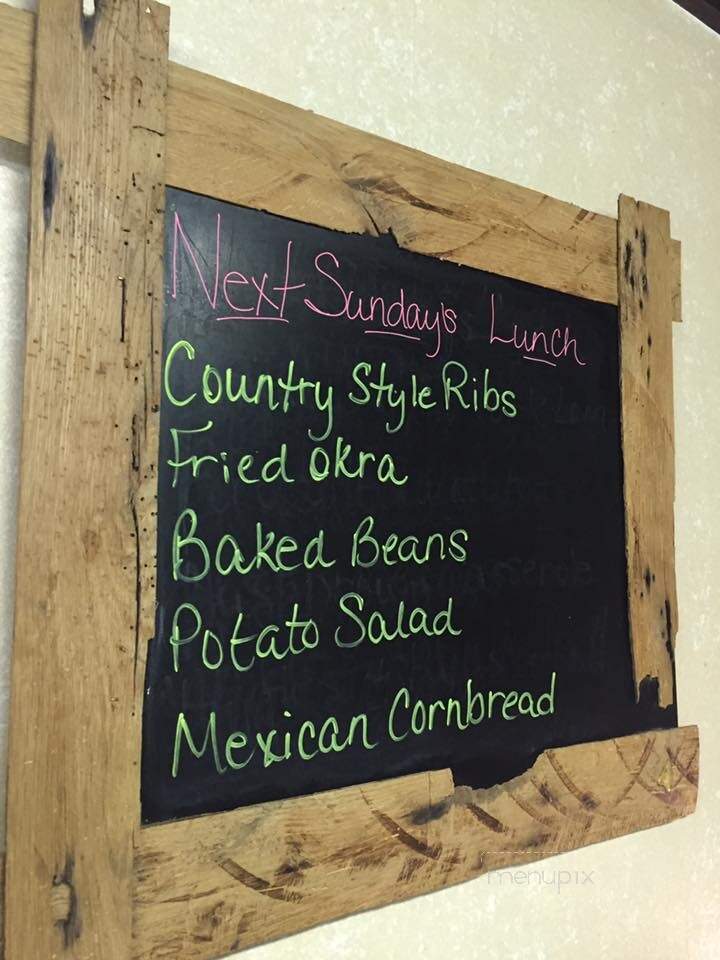 Next Sunday's Lunch
Country Style Ribs
Fried Okra
Baked Beans
Potato Salad
Mexican Cornbread
menupix